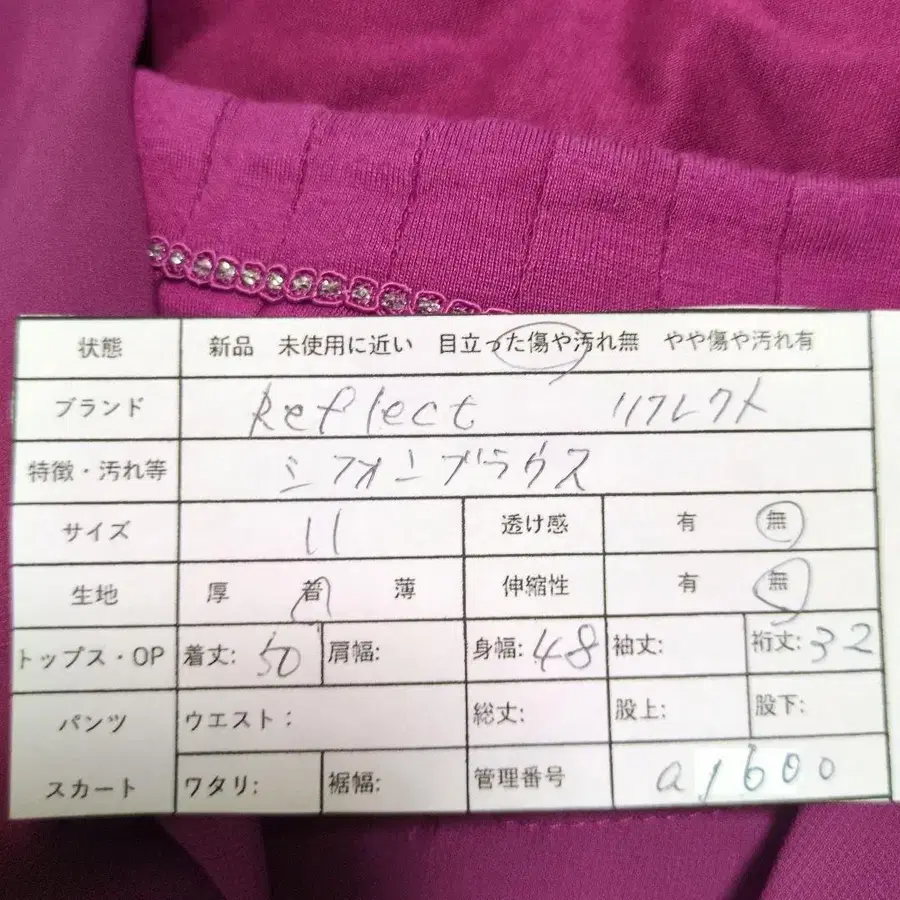 状態 新品 未使用に近い 目立った傷や汚れ無 やや傷や汚れ有
ブランド Reflect リフレクト
特徴・汚れ等 シフォンブラウス
サイズ 11 透け感 有 無
生地 厚 普 薄 伸縮性 有 無
トップス・OP 着丈: 50 肩幅: 身幅: 48 袖丈: 裄丈: 32
パンツ ウエスト: 総丈: 股上: 股下:
スカート ワタリ: 裾幅: 管理番号 a1600